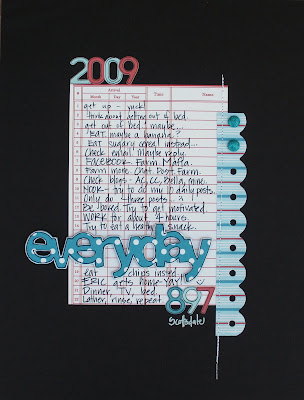 2009
Arrival
# Month Day Year Time Name
get up - yuck!
think about getting out of bed
get out of bed maybe...
EAT maybe a banana?
Eat sugary cereal instead...
Check email. Maybe reply.
FACEBOOK. Farm. Mafia.
Farm more. Chat. Post. Farm.
Check blogs - AC, CC, Bella, mine.
NOOK - try to do my 10 daily posts.
Only do four posts.
Be bored. Try to get motivated.
WORK for about 4 hours.
Try to eat a healthy snack.
everyday
eat chips instead
ERIC gets home - YAY!
Dinner, TV, bed.
Lather, rinse, repeat.
897
Scottsdale